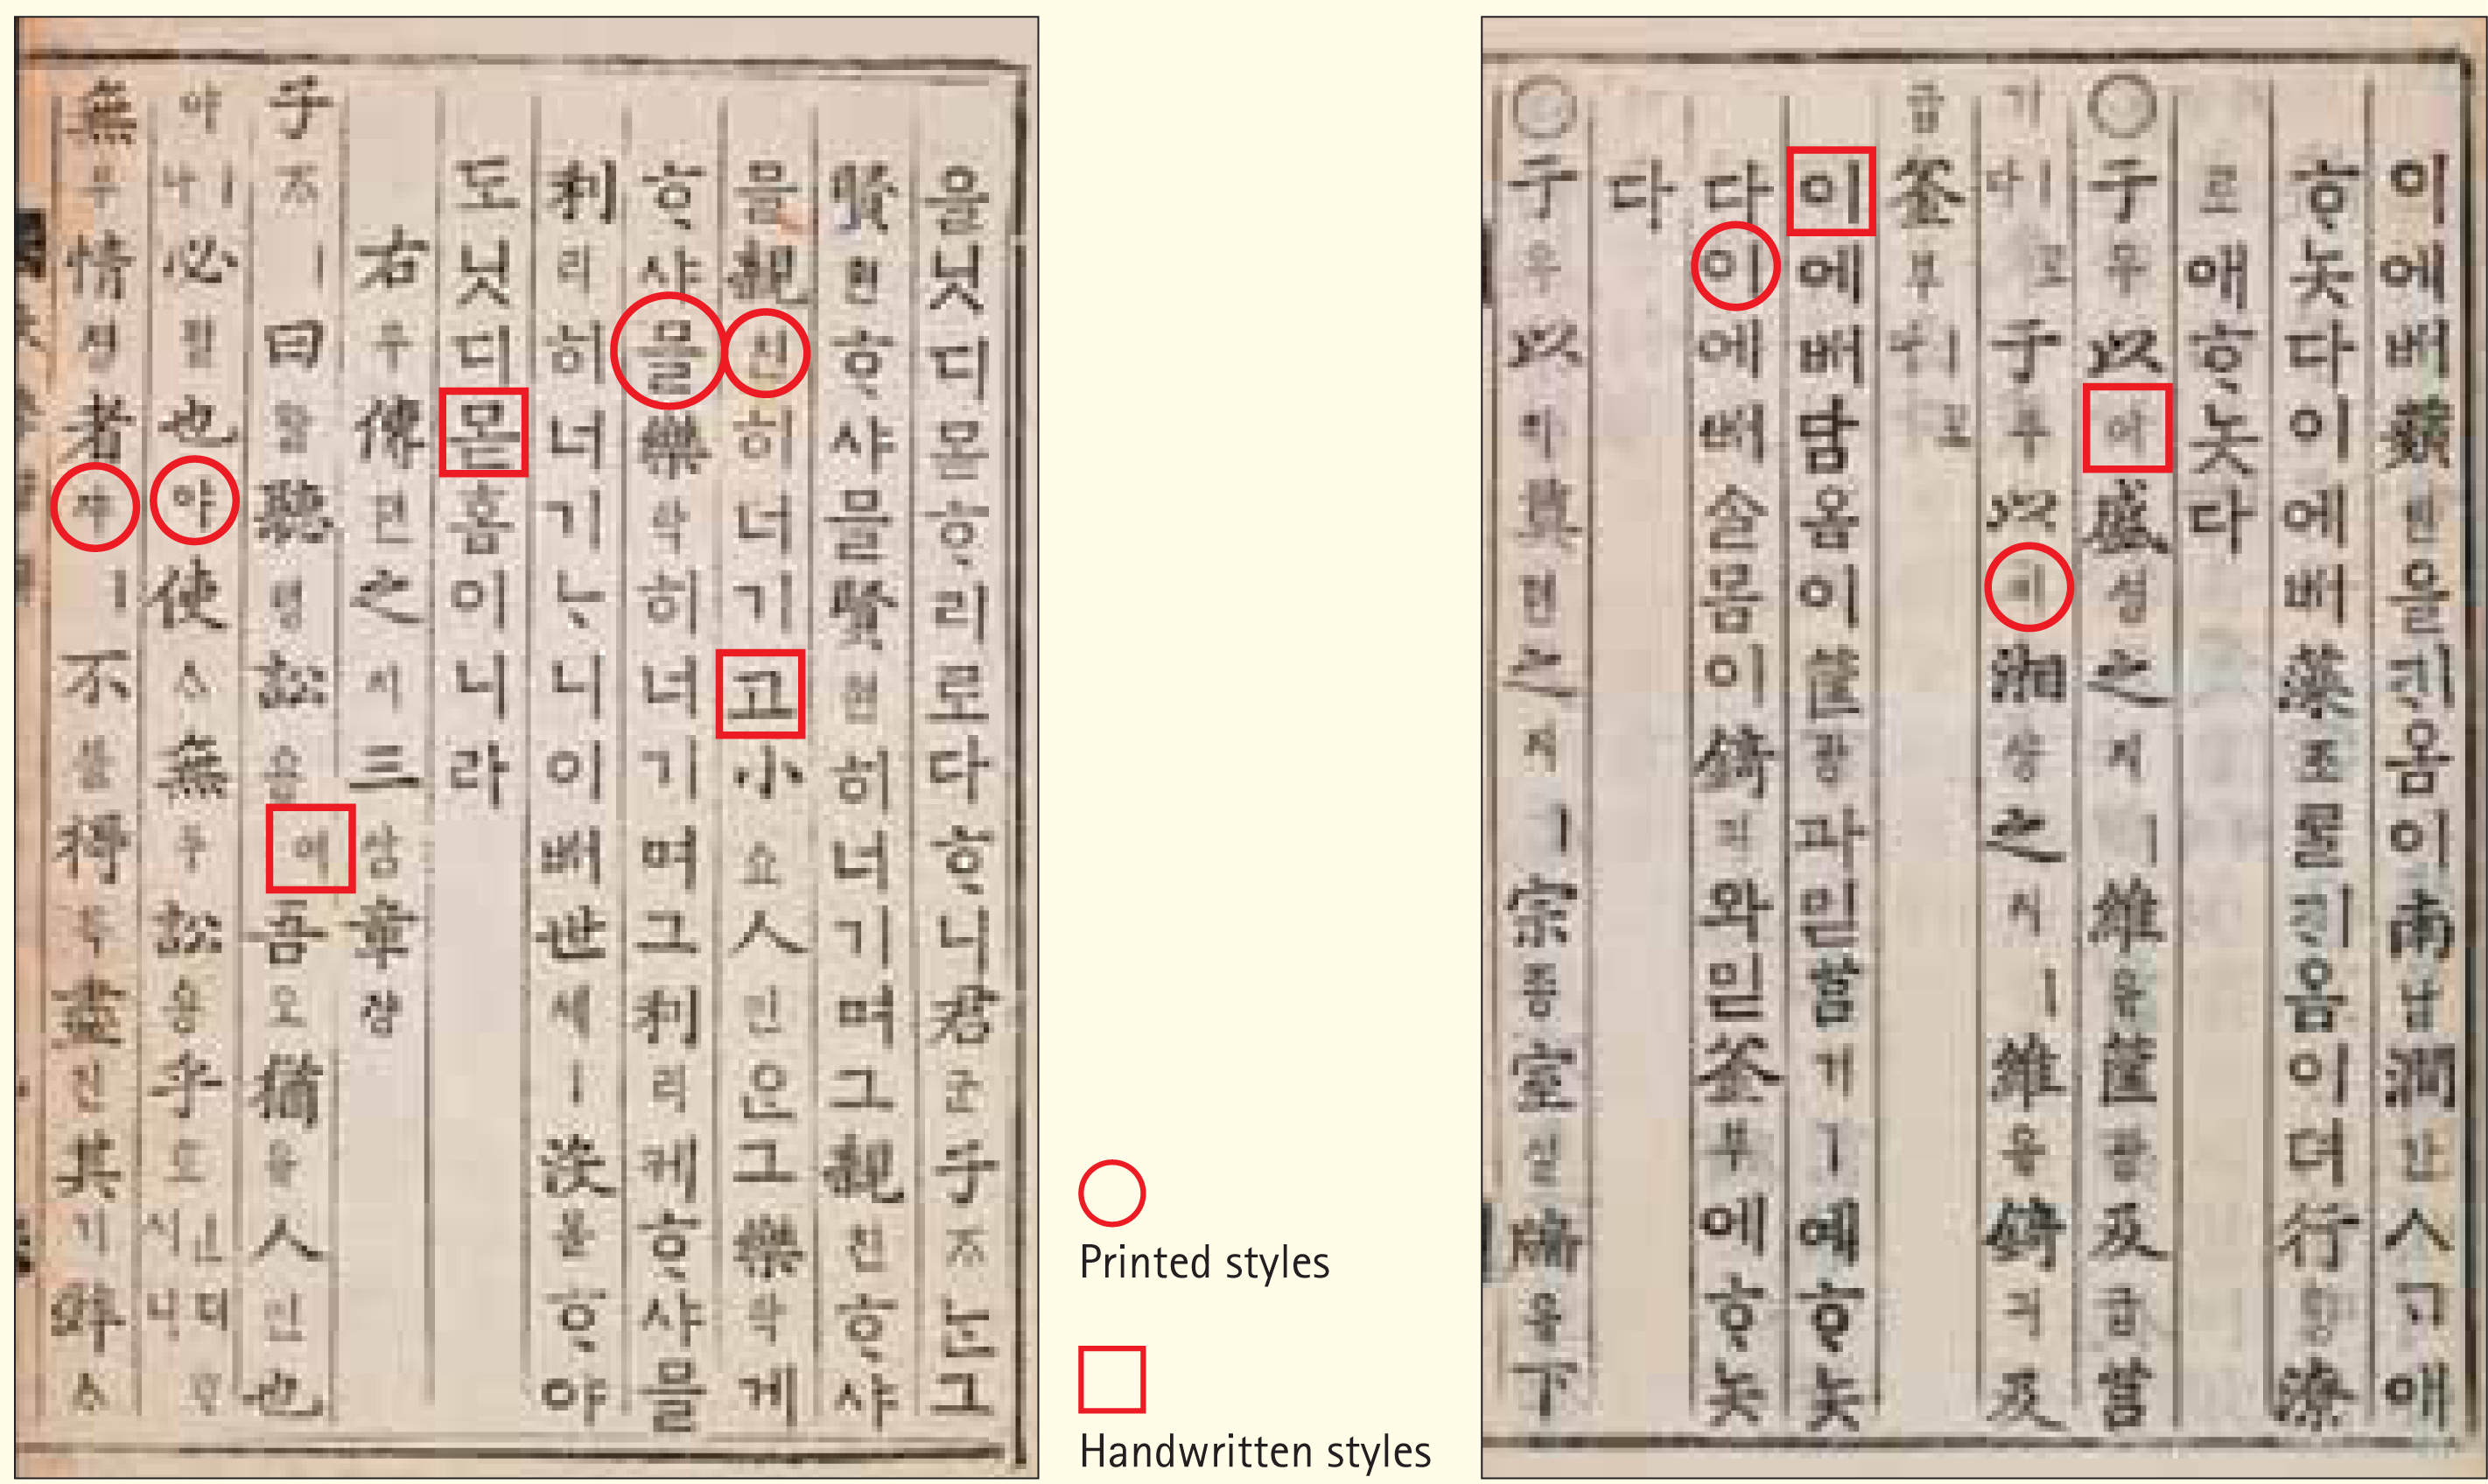 을닛디몯ᄒᆞ리로다ᄒᆞ니君군子ᄌᆞᄂᆞᆫ그
賢현ᄒᆞ샤믈賢현히너기며그親친ᄒᆞ샤
믈親친히너기고小쇼人인은그樂락게
ᄒᆞ샤믈樂락히너기며그利리케ᄒᆞ샤믈
利리히너기ᄂᆞ니이ᄡᅥ世셰ㅣ沒몰ᄒᆞ야
도닛디몯홈이니라
右우傳뎐之지三삼章쟝
子ᄌᆞㅣ曰왈聽텽訟숑이吾오猶유人인也
야ㅣ나必필也야使ᄉᆞ無무訟숑乎호
無무情졍者쟈ㅣ不블得득盡진其기辭ᄉᆞ
Printed styles
Handwritten styles
이에ᄡᅥ蘋빈을ᄏᆡ욤이南남澗간ㅅᄀᆞ애
ᄒᆞ놋다이에ᄡᅥ藻조를ᄏᆡ욤이뎌行ᄒᆡᆼ潦
로애ᄒᆞ놋다
○于우以이盛셩之지ㅣ維유筐광及급筥
于우以이湘샹之지ㅣ維유錡긔及
급釜부ㅣ로다
이에ᄡᅥ담옴이筐광과밋筥거ㅣ예ᄒᆞ놋
다이에ᄡᅥ ᄉᆞᆱ옴이錡긔와밋釜부에ᄒᆞ놋
다
○于우以이奠뎐之지ㅣ宗종室실牖유下